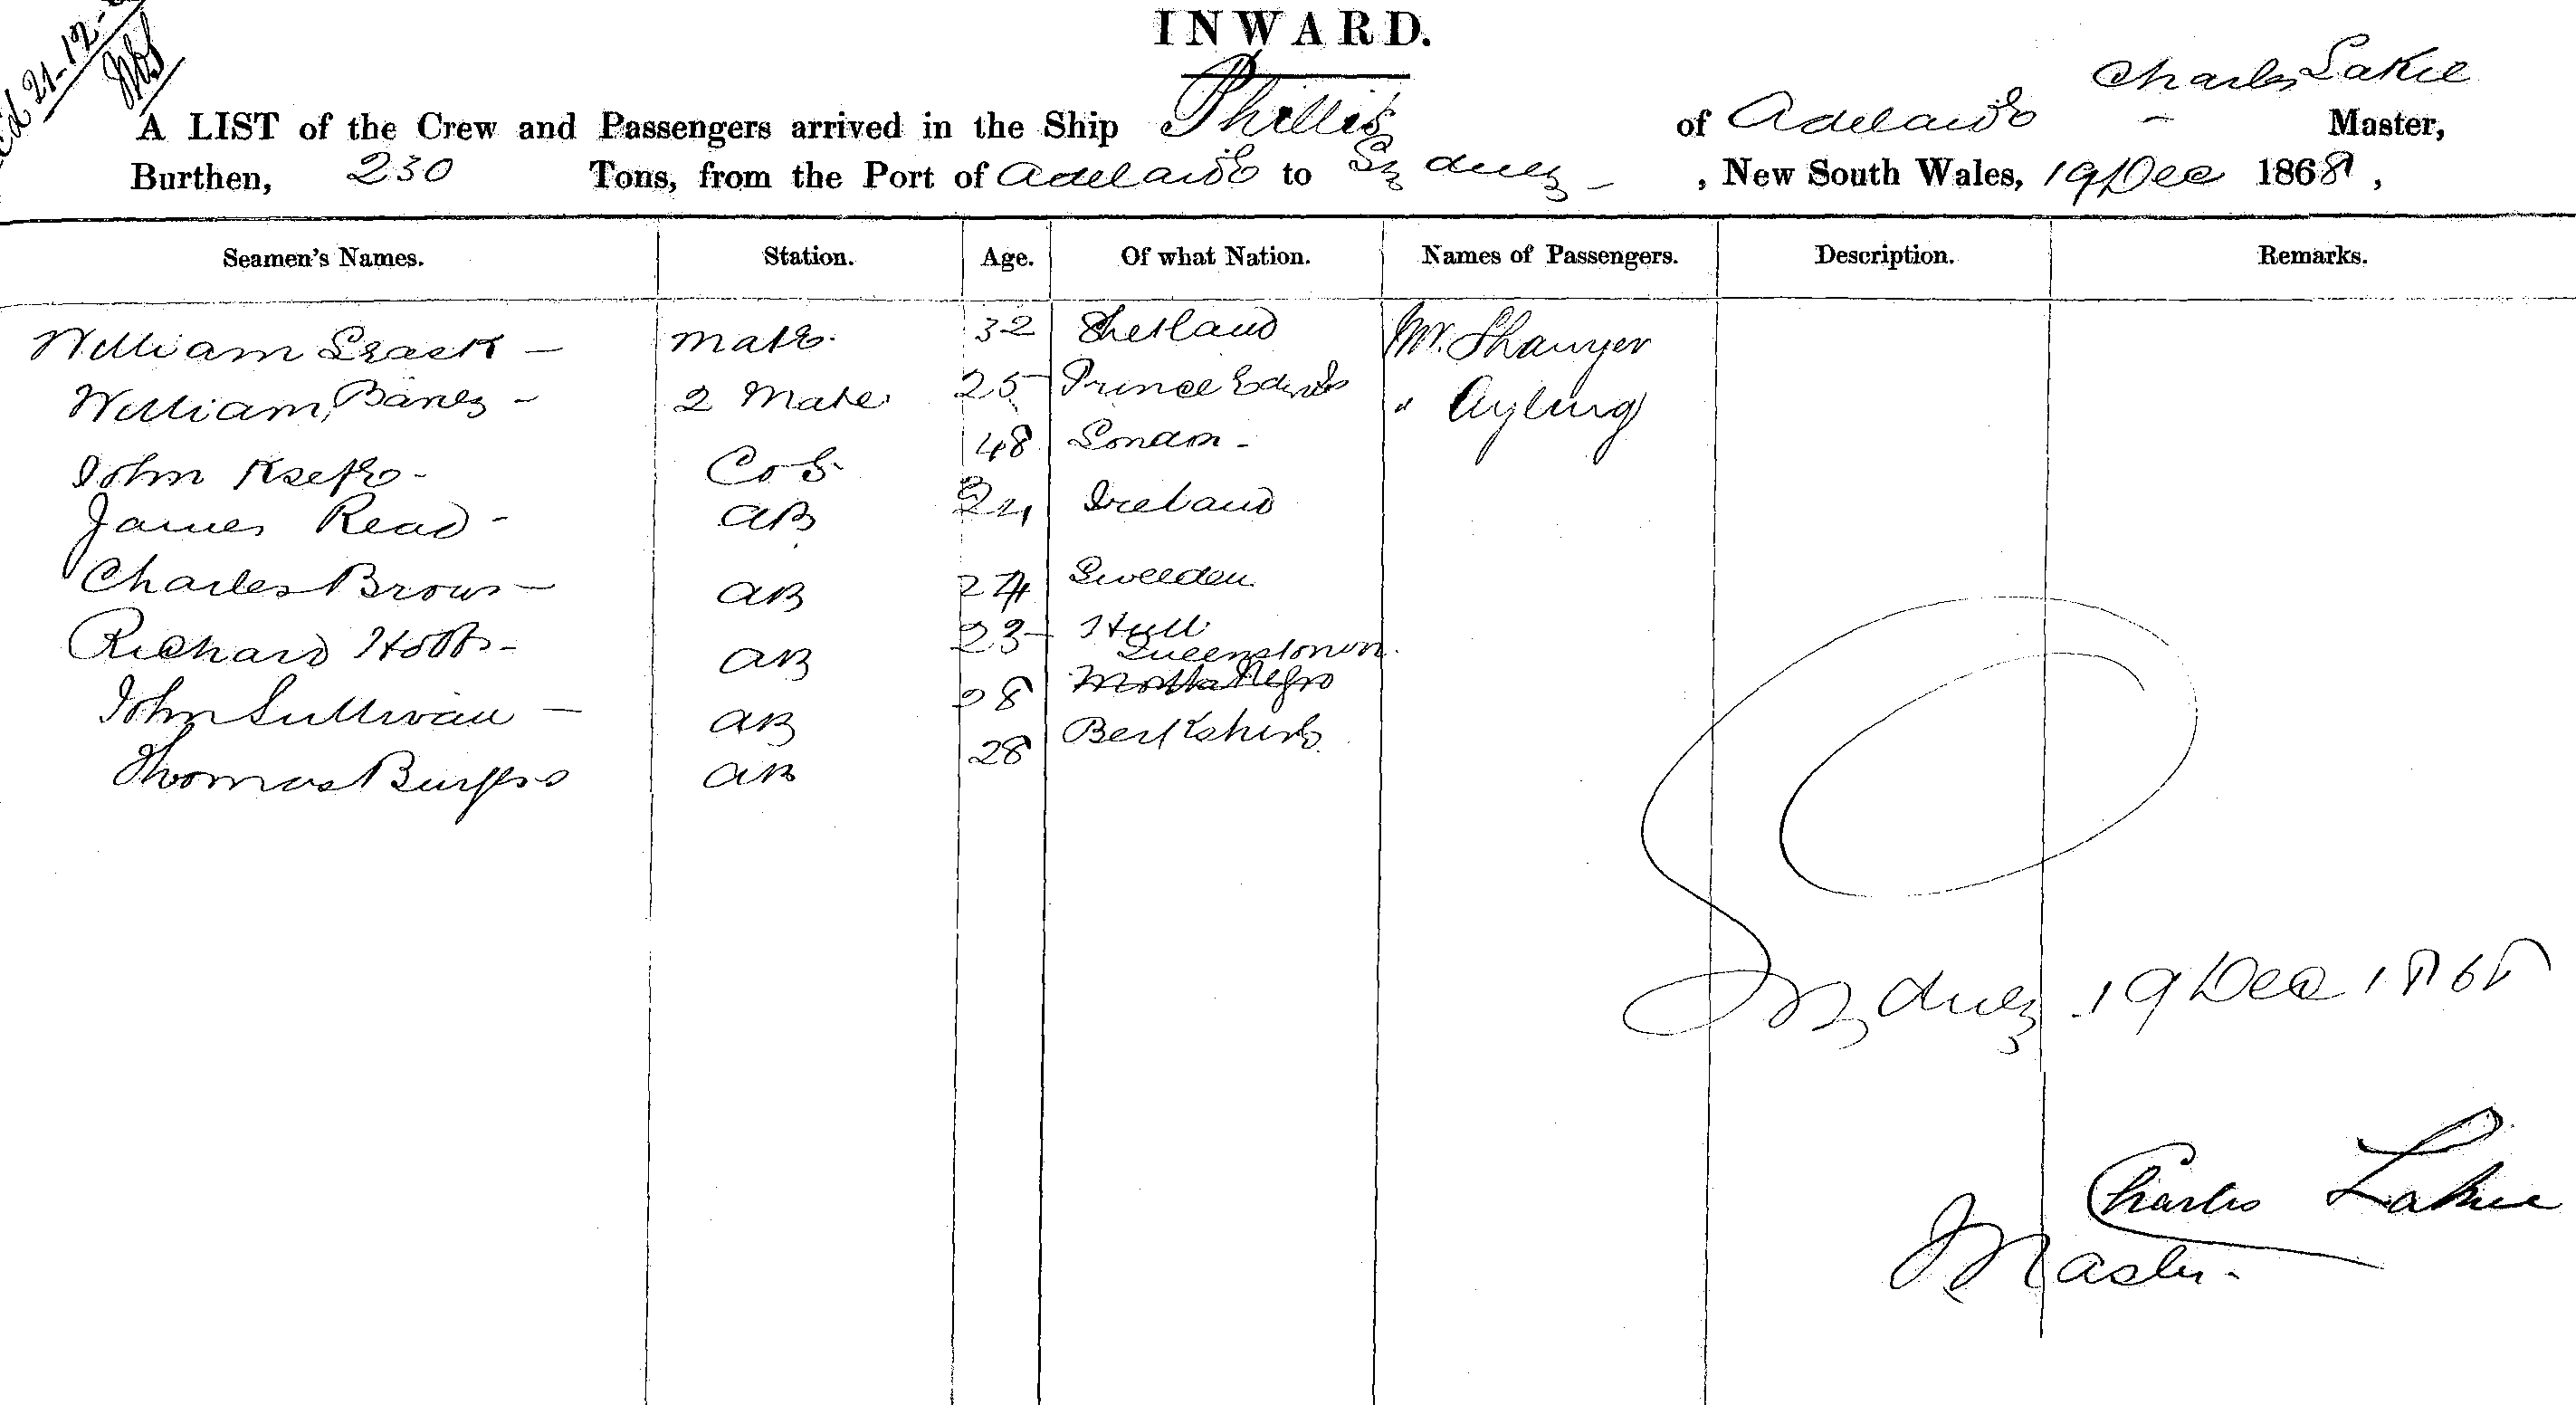 21-12-
INWARD.
Charles Lakie
A LIST of the Crew and Passengers arrived in the Ship Phillis of Adelaide - Master,
Burthen, 230 Tons, from the Port of Adelaide to Sydney - , New South Wales, 19 Dec 1868 ,
Seamen's Names. Station. Age. Of what Nation. Names of Passengers. Description. Remarks.
William Leask - Mate. 32 Shetland Mr. Shawyer
William Baney - 2 Mate 25 Prince Edwds " Ayling
John - Co S 48 London -
James Read - AB 24 Ireland
Charles Brown - AB 24 Sweeden
Richard Hobbs - AB 23 Hull
Queenstown
John Sullivan - AB 28
Thomas Burgess AB 28 Berkshire
Sydney 19 Dec 1868
Charles Lakie
Master.